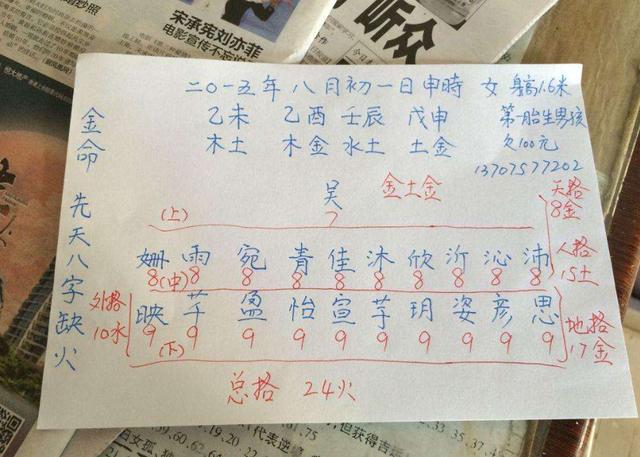 宋承宪刘亦菲
电影宣传不忘
听众
二〇一五年八月初一日申時 女 身高1.6米
乙未 乙酉 壬辰 戊申 第一胎生男孩
木土 木金 水土 土金 欠100元
13707577202
金命 先天八字缺火
吴 金土金
(上) 7
天格
8金
姗 雨 宛 青 佳 沐 欣 沂 沁 沛
8 (中) 8 8 8 8 8 8 8 8 8
人格
15土
外格
10水
映 芊 盈 怡 宣 芋 玥 姿 彦 思
9 (下) 9 9 9 9 9 9 9 9 9
地格
17金
总格 24火
代表逆
但获得吉